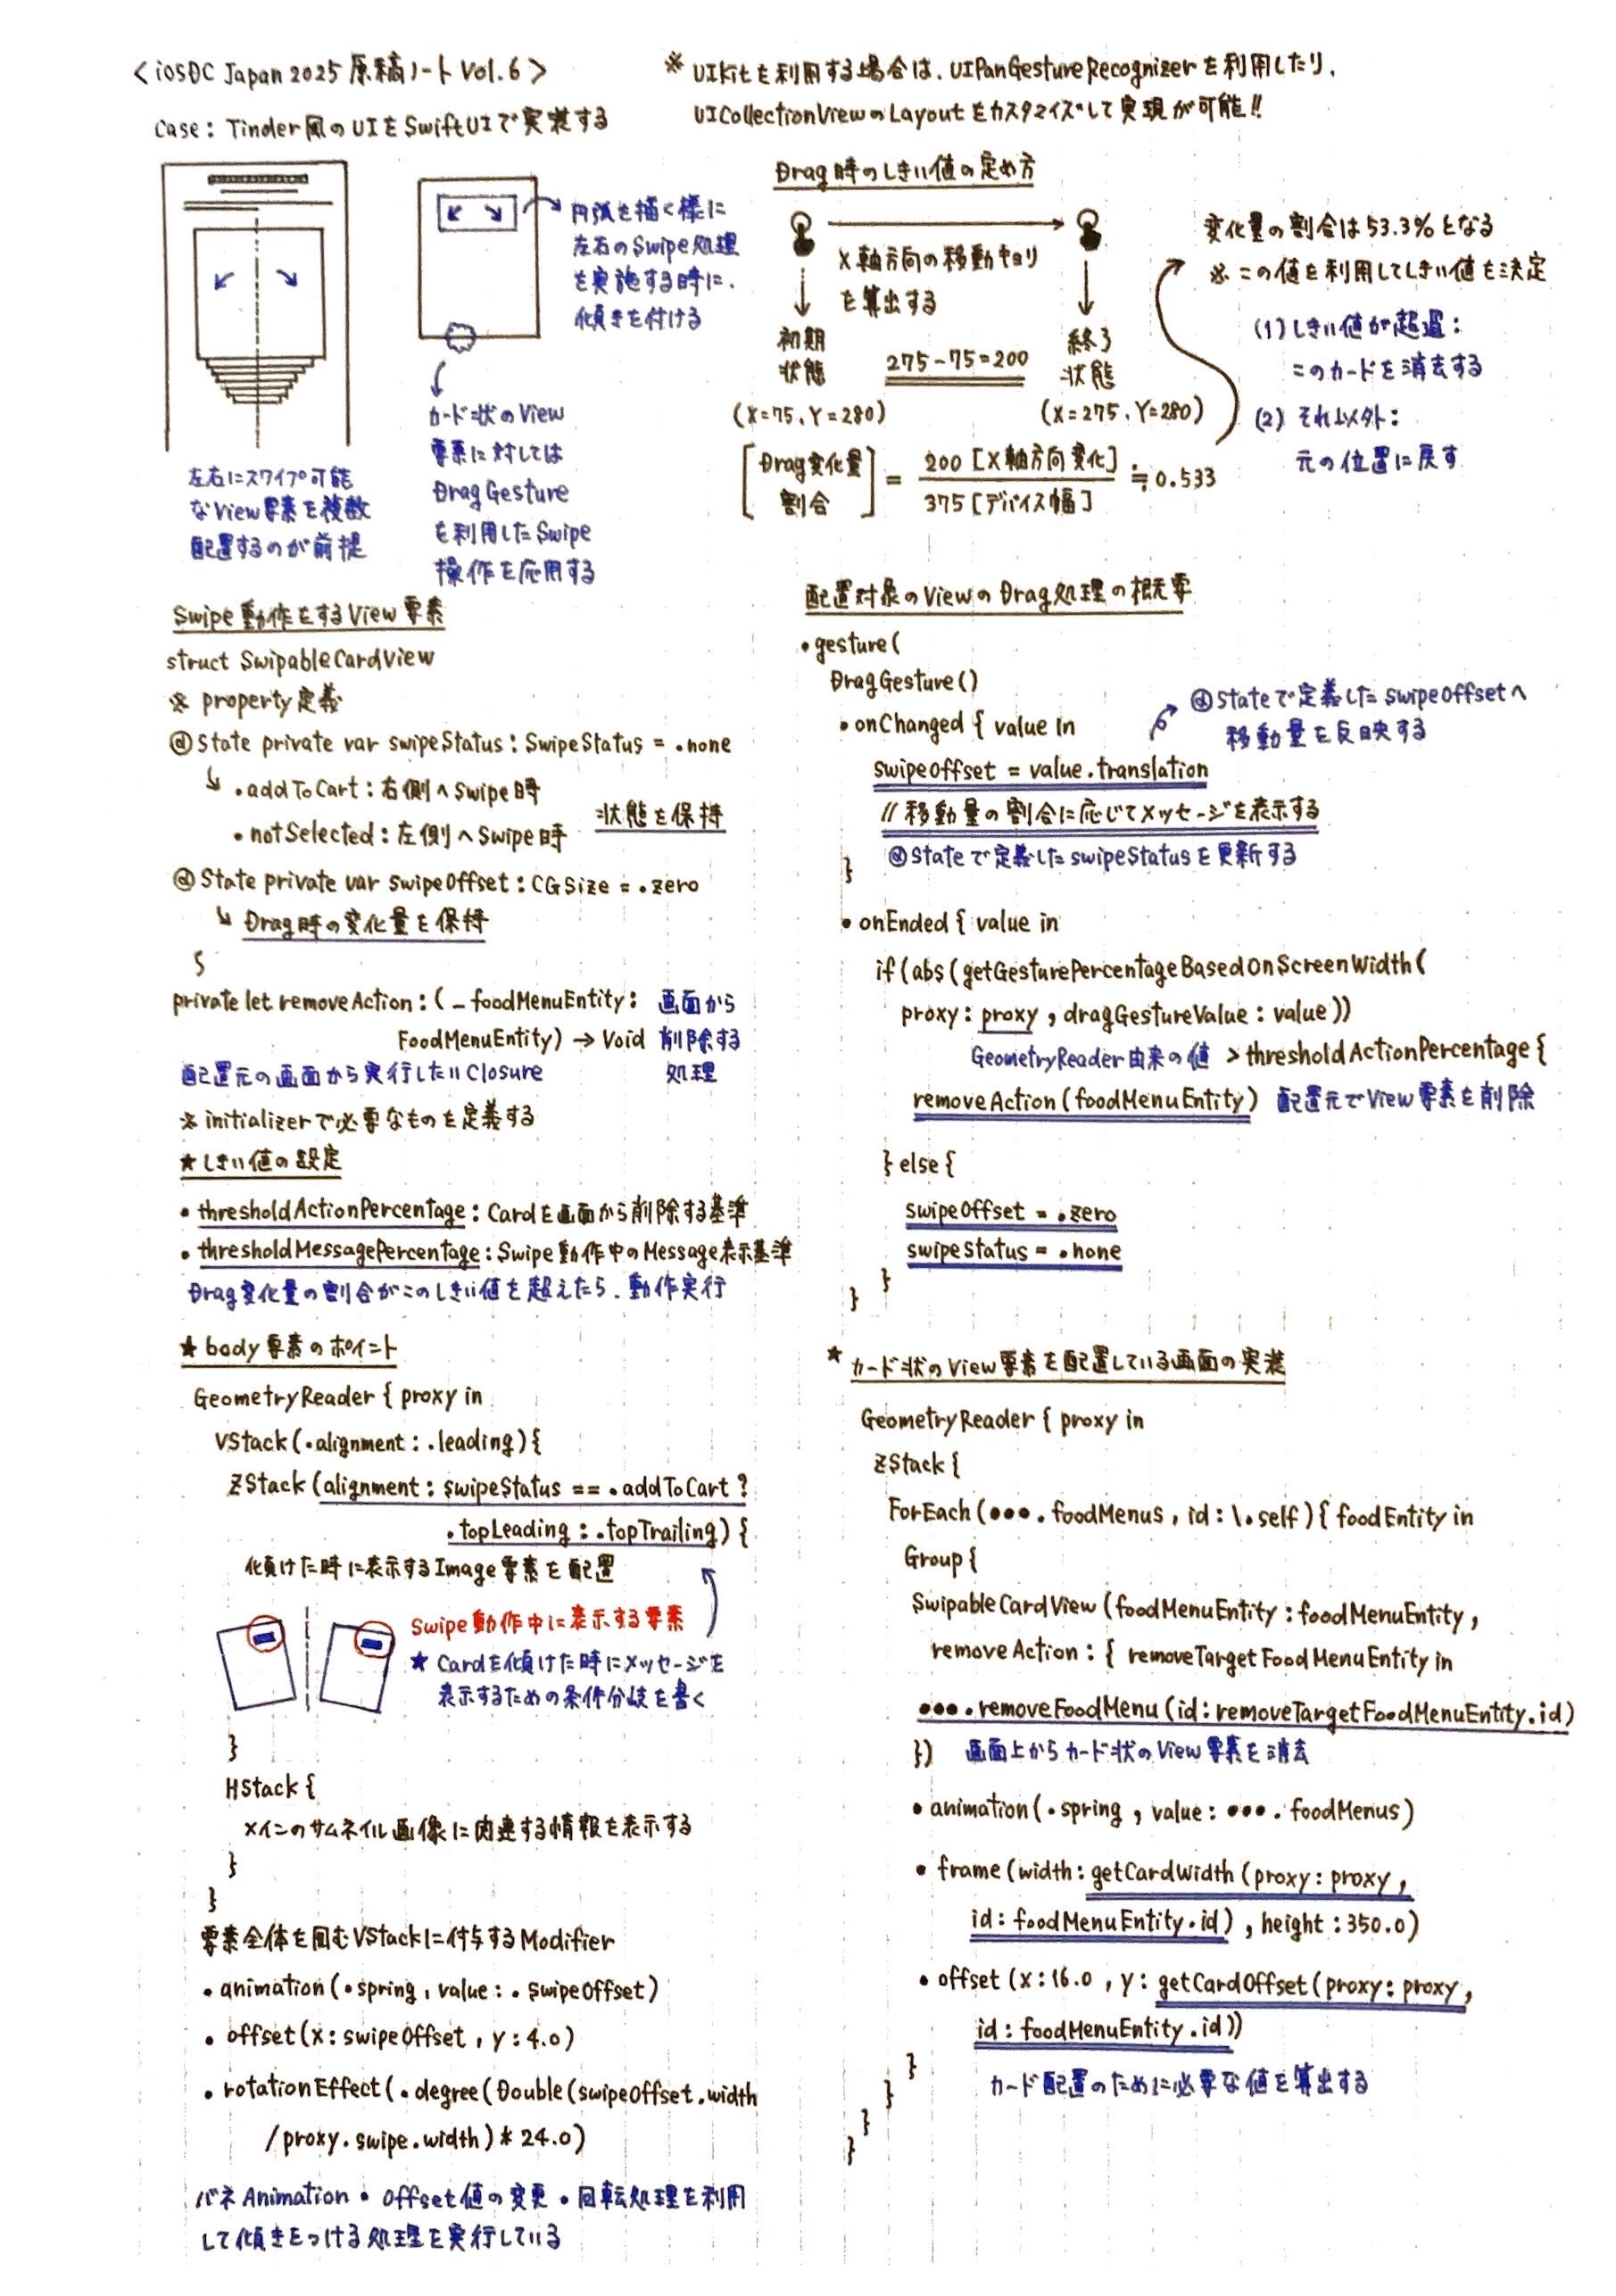 <iOSDC Japan 2025 原稿ノート Vol.6>
Case: Tinder風のUIをSwiftUIで実装する
※ UIKitを利用する場合は、UIPanGestureRecognizerを利用したり、
UICollectionViewのLayoutをカスタマイズして実現が可能!!
円弧を描く様に
左右のSwipe処理
を実施する時に、
傾きを付ける
左右にスワイプ可能
なView要素を複数
配置するのが前提
カード状のView
要素に対しては
DragGesture
を利用したSwipe
操作を応用する
Drag時のしきい値の定め方
X軸方向の移動キョリ
を算出する
初期
状態
275-75=200
終了
状態
(X=75, Y=280)
(X=275, Y=280)
Drag変化量
割合
=
200 [X軸方向変化]
375 [デバイス幅]
≒0.533
変化量の割合は53.3%となる
※ この値を利用してしきい値を決定
(1) しきい値が超過:
このカードを消去する
(2) それ以外:
元の位置に戻す
Swipe動作をするView要素
struct SwipableCardView
※ property定義
@State private var swipeStatus: SwipeStatus = .none
↳ .addToCart: 右側へSwipe時
・notSelected: 左側へSwipe時
状態を保持
@State private var swipeOffset: CGSize = .zero
↳ Drag時の変化量を保持
private let removeAction: (_ foodMenuEntity:
FoodMenuEntity) → Void
画面から
削除する
処理
配置元の画面から実行したいClosure
※ initializerで必要なものを定義する
★しきい値の設定
・thresholdActionPercentage: Cardを画面から削除する基準
・thresholdMessagePercentage: Swipe動作中のMessage表示基準
Drag変化量の割合がこのしきい値を超えたら、動作実行
★ body要素のポイント
GeometryReader { proxy in
VStack(.alignment: .leading){
ZStack (alignment: swipeStatus == .addToCart ?
.topLeading : .topTrailing) {
傾けた時に表示するImage要素を配置
Swipe動作中に表示する要素
★ Cardを傾けた時にメッセージを
表示するための条件分岐を書く
}
HStack {
メインのサムネイル画像に関連する情報を表示する
}
}
要素全体を囲むVStackに付与するModifier
・animation(.spring, value: .swipeOffset)
・offset(x: swipeOffset, y: 4.0)
・rotationEffect(.degree(Double(swipeOffset.width
/proxy.swipe.width) * 24.0)
バネAnimation・Offset値の変更・回転処理を利用
して傾きをつける処理を実行している
配置対象のViewのDrag処理の概要
・gesture(
DragGesture()
・onChanged { value in
swipeOffset = value.translation
@Stateで定義したswipeOffsetへ
移動量を反映する
// 移動量の割合に応じてメッセージを表示する
@Stateで定義したswipeStatusを更新する
}
・onEnded { value in
if (abs (getGesturePercentageBasedOnScreenWidth(
proxy: proxy, dragGestureValue: value))
GeometryReader由来の値 > thresholdActionPercentage {
removeAction(foodMenuEntity) 配置元でView要素を削除
} else {
swipeOffset = .zero
swipeStatus = .none
}
}
★ カード状のView要素を配置している画面の実装
GeometryReader { proxy in
ZStack {
ForEach (●●●.foodMenus, id: \.self) { foodEntity in
Group {
SwipableCardView (foodMenuEntity: foodMenuEntity,
removeAction: { removeTargetFoodMenuEntity in
●●●.removeFoodMenu(id: removeTargetFoodMenuEntity.id)
}) 画面上からカード状のView要素を消去
・animation(.spring, value: ●●●.foodMenus)
・frame (width: getCardWidth (proxy: proxy,
id: foodMenuEntity.id), height: 350.0)
・offset (x: 16.0, y: getCardOffset(proxy: proxy,
id: foodMenuEntity.id))
}
カード配置のために必要な値を算出する
}
}
}